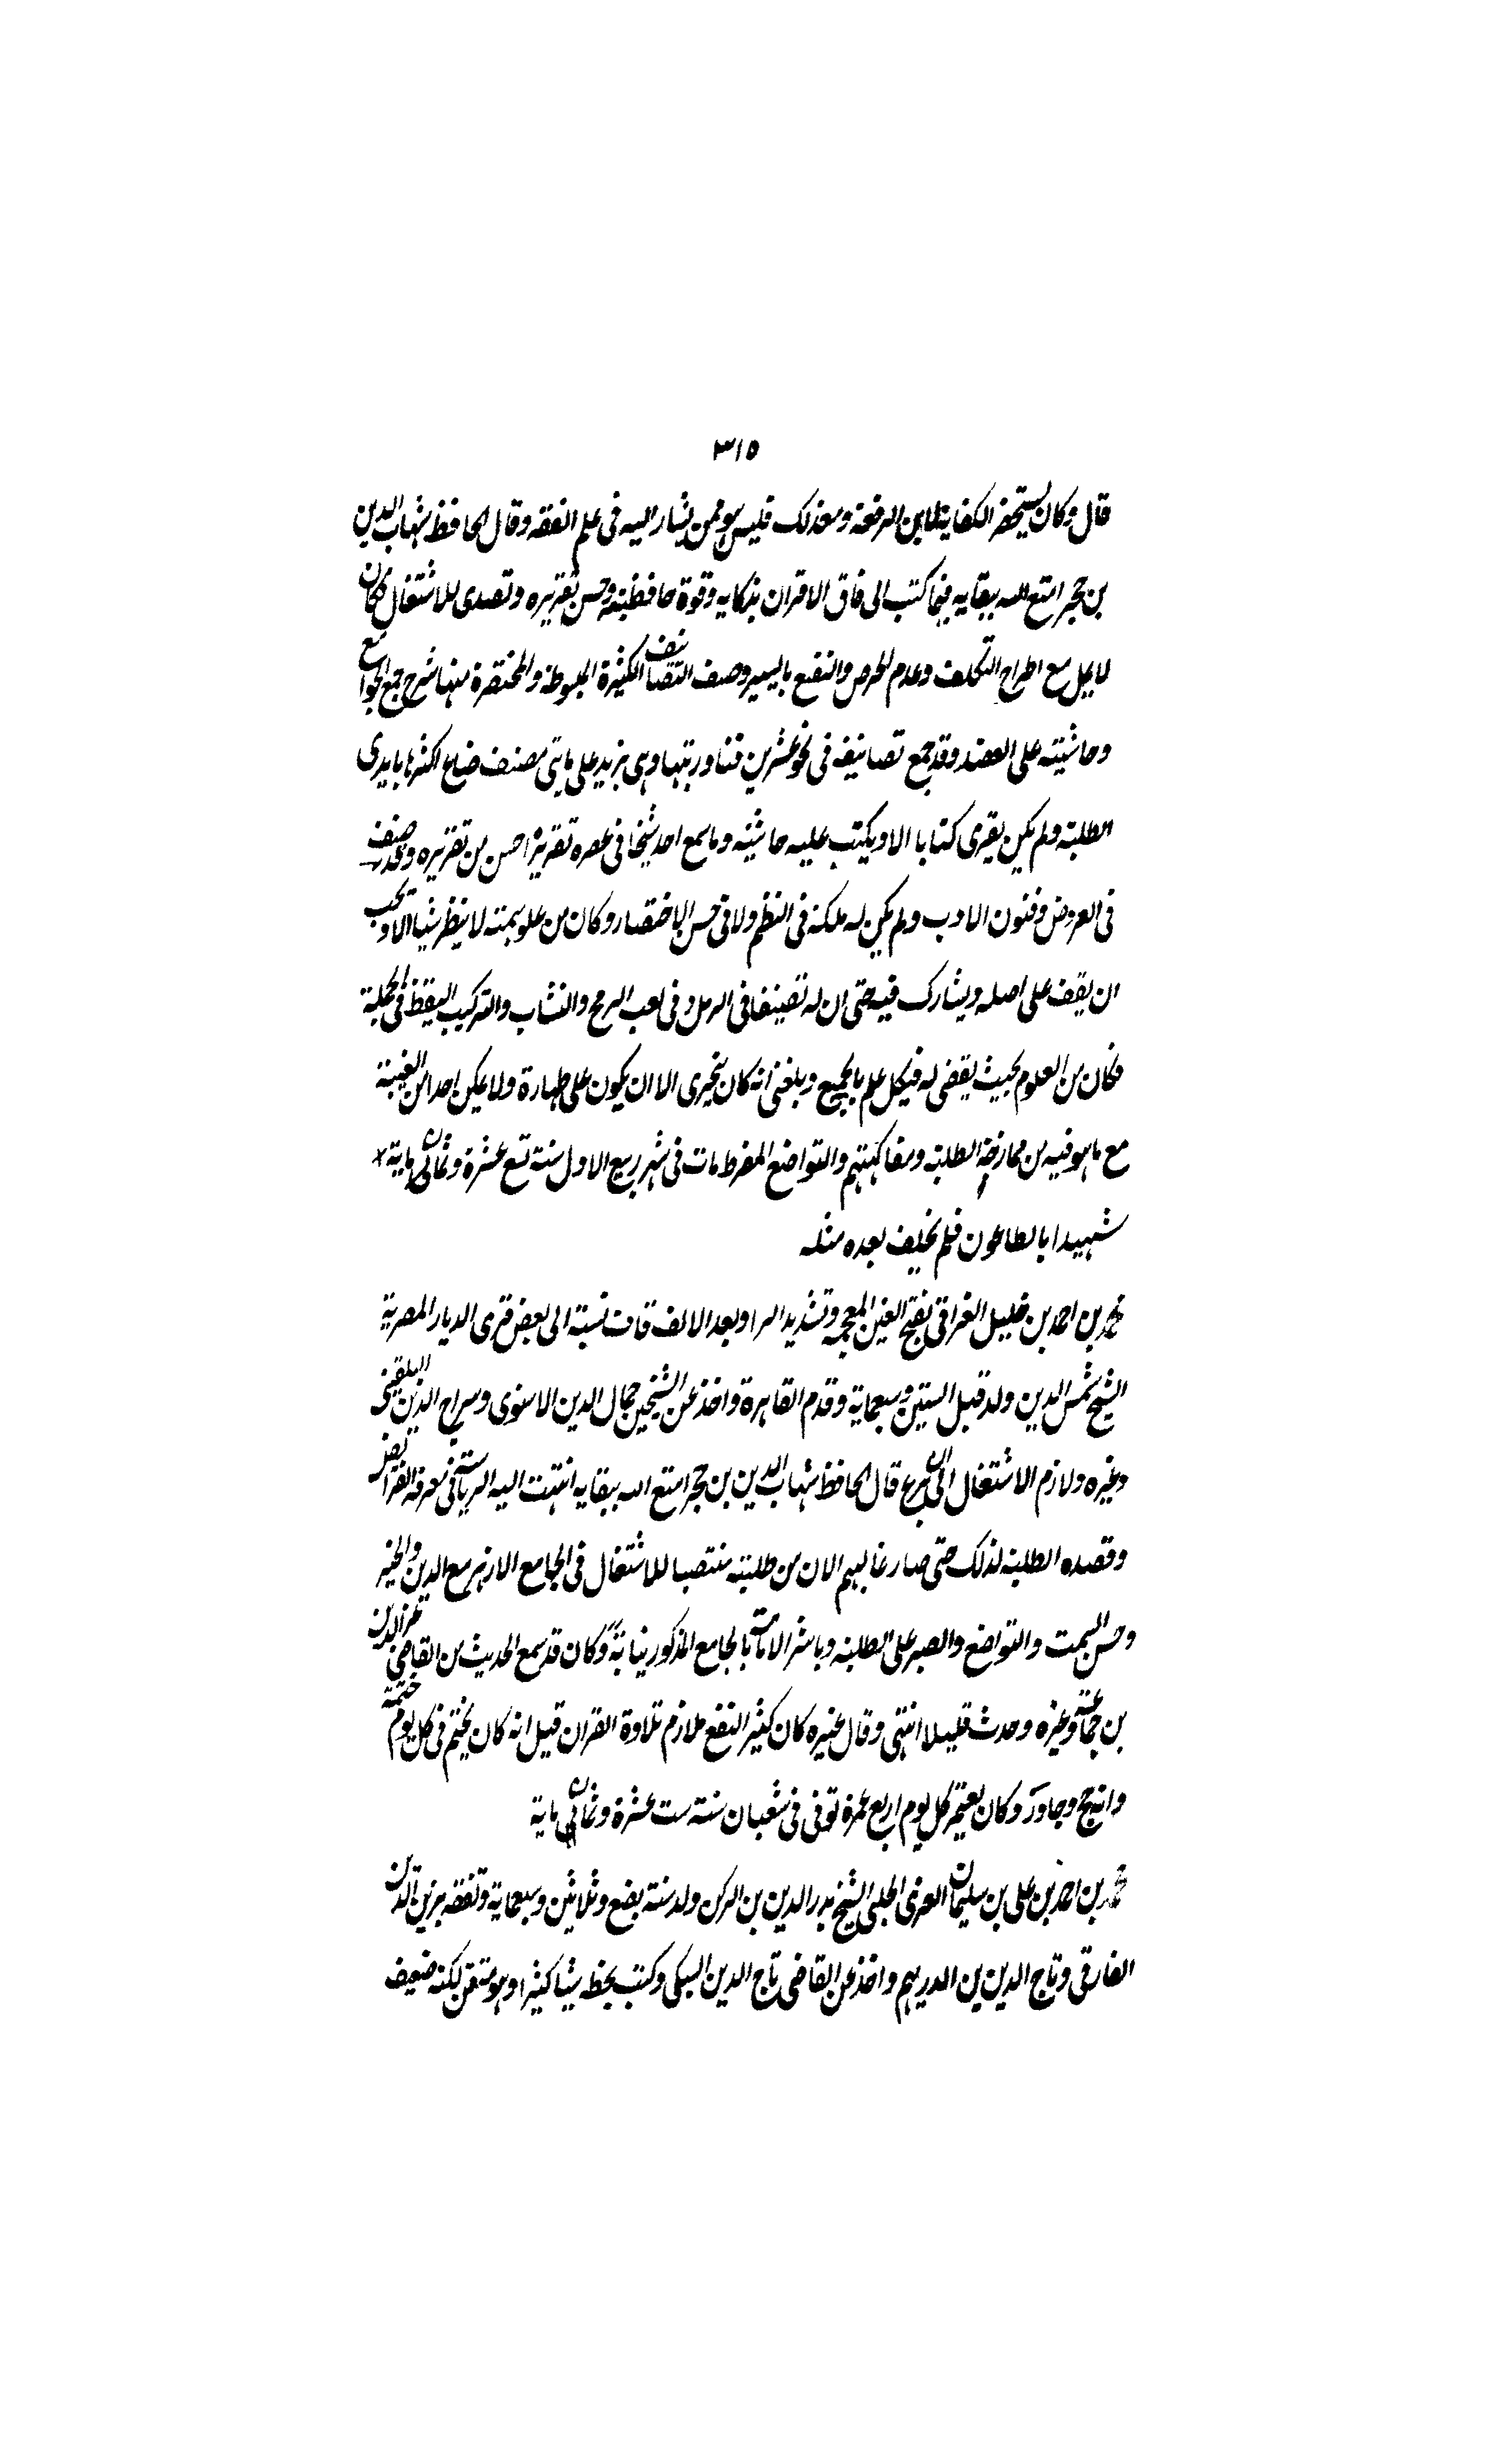 ٣١٥
قال وكان يستحضر الكفاية لابن الرفعة ومع ذلك فليس هو ممن يشار اليه فى علم الفقه وقال الحافظ شهاب الدين
بن حجر امتع الله ببقايه فيما كتب الى فاق الاقران بذكايه وقوة حافظته وحسن تقريره وتصدى للاشتغال فكان
لا يمل مع اطراح التكلف وعدم الحرص والتقنع باليسير وصنف التصانيف الكثيرة المبسوطة والمختصرة منها شرح جمع الجوامع
وحاشيته على العضد وقد جمع تصانيفه فى نحو عشرين فنا ورتبها وهى يزيد على مايتى مصنف ضاع اكثرها بايدى
الطلبة ولم يكن يقرى كتابا الا ويكتب عليه حاشيه وما سمع احد شيخا فى عصره تقريرا احسن من تقريره وقد صنف
فى العروض وفنون الادب ولم يكن له ملكة فى النظم ولا فى حسن الاختصار وكان من علو همته لا ينظر شيا الا ويحب
ان يقف على اصله ويشارك فيه حتى ان له تصنيفا فى الرمل وفى لعب الرمح والنشاب والتركيب اليقظ فى الجملة
فكان من العلوم بحيث يقضى له فى كل علم بالجميع وبلغنى انه كان يتحرى الا ان يكون على طهارة ولا يمكن احدا من الغيبة
مع ما هو فيه من ممازحة الطلبة ومفاكهتهم والتواضع المفرط مات فى شهر ربيع الاول سنة تسع عشرة وثمانى ماية
شهيدا بالطاعون فلم يخلف بعده مثله
محمد بن احمد بن خليل الغراقى بفتح الغين المعجمة وتشديد الرا وبعد الالف قاف نسبة الى بعض قرى الديار المصرية
الشيخ شمس الدين ولد قبل الستين وسبعماية وقدم القاهرة واخذ عن الشيخين جمال الدين الاسنوى وسراج الدين البلقينى
وغيره ولازم الاشتغال الى ان برع قال الحافظ شهاب الدين بن حجر امتع الله ببقايه انتهت اليه الرياسة فى معرفة الفرائض
وقصده الطلبة لذلك حتى صار غالبهم الان من طلبته منتصبا للاشتغال فى الجامع الازهر مع الدين والخير
وحسن السمت والتواضع والصبر على الطلبة وباشر الامامة بالجامع المذكور نيابة وكان قد سمع الحديث من القاضى عز الدين
بن جماعة وغيره وحدث قليلا انتهى وقال غيره كان كثير النفع ملازم تلاوة القران قيل انه كان يختم فى كل يوم ختمة
وانه حج وجاور وكان يعتمر كل يوم اربع عمرة توفى فى شعبان سنة ست عشرة وثمانى ماية
محمد بن احمد بن على بن سليمان المعرى الحلبى الشيخ بدر الدين بن الركن ولد سنة بضع وثلاثين وسبعماية وتفقه بزين الدين
الفارقى وتاج الدين بن الدريهم واخذ عن القاضى تاج الدين السبكى وكتب بخطه شيا كثيرا وهو متقن لكنه ضعيف